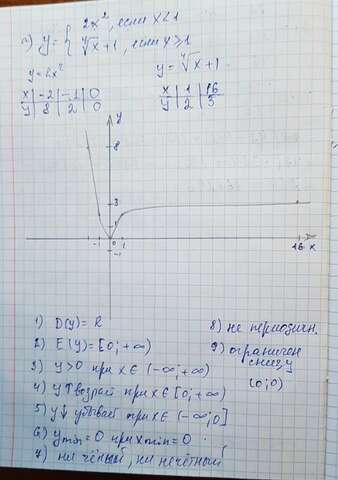 а) y = { 2x², если x<1
⁴√x+1, если x≥1
y=2x² y=⁴√x+1
x | -2 | -1 | 0 x | 1 | 16
y | 8 | 2 | 0 y | 2 | 3
y
8
3
1
-1 0 1 16 x
-1
1) D(y)= R
2) E(y)= [0; +∞)
3) y>0 при x∈ (-∞; +∞)
4) y↑ возраст при x∈ [0; +∞)
5) y↓ убывает при x∈ (-∞; 0]
6) ymin=0 при xmin=0
7) ни чётный, ни нечётный
8) не периодичн.
9) ограничен
снизу
(0; 0)